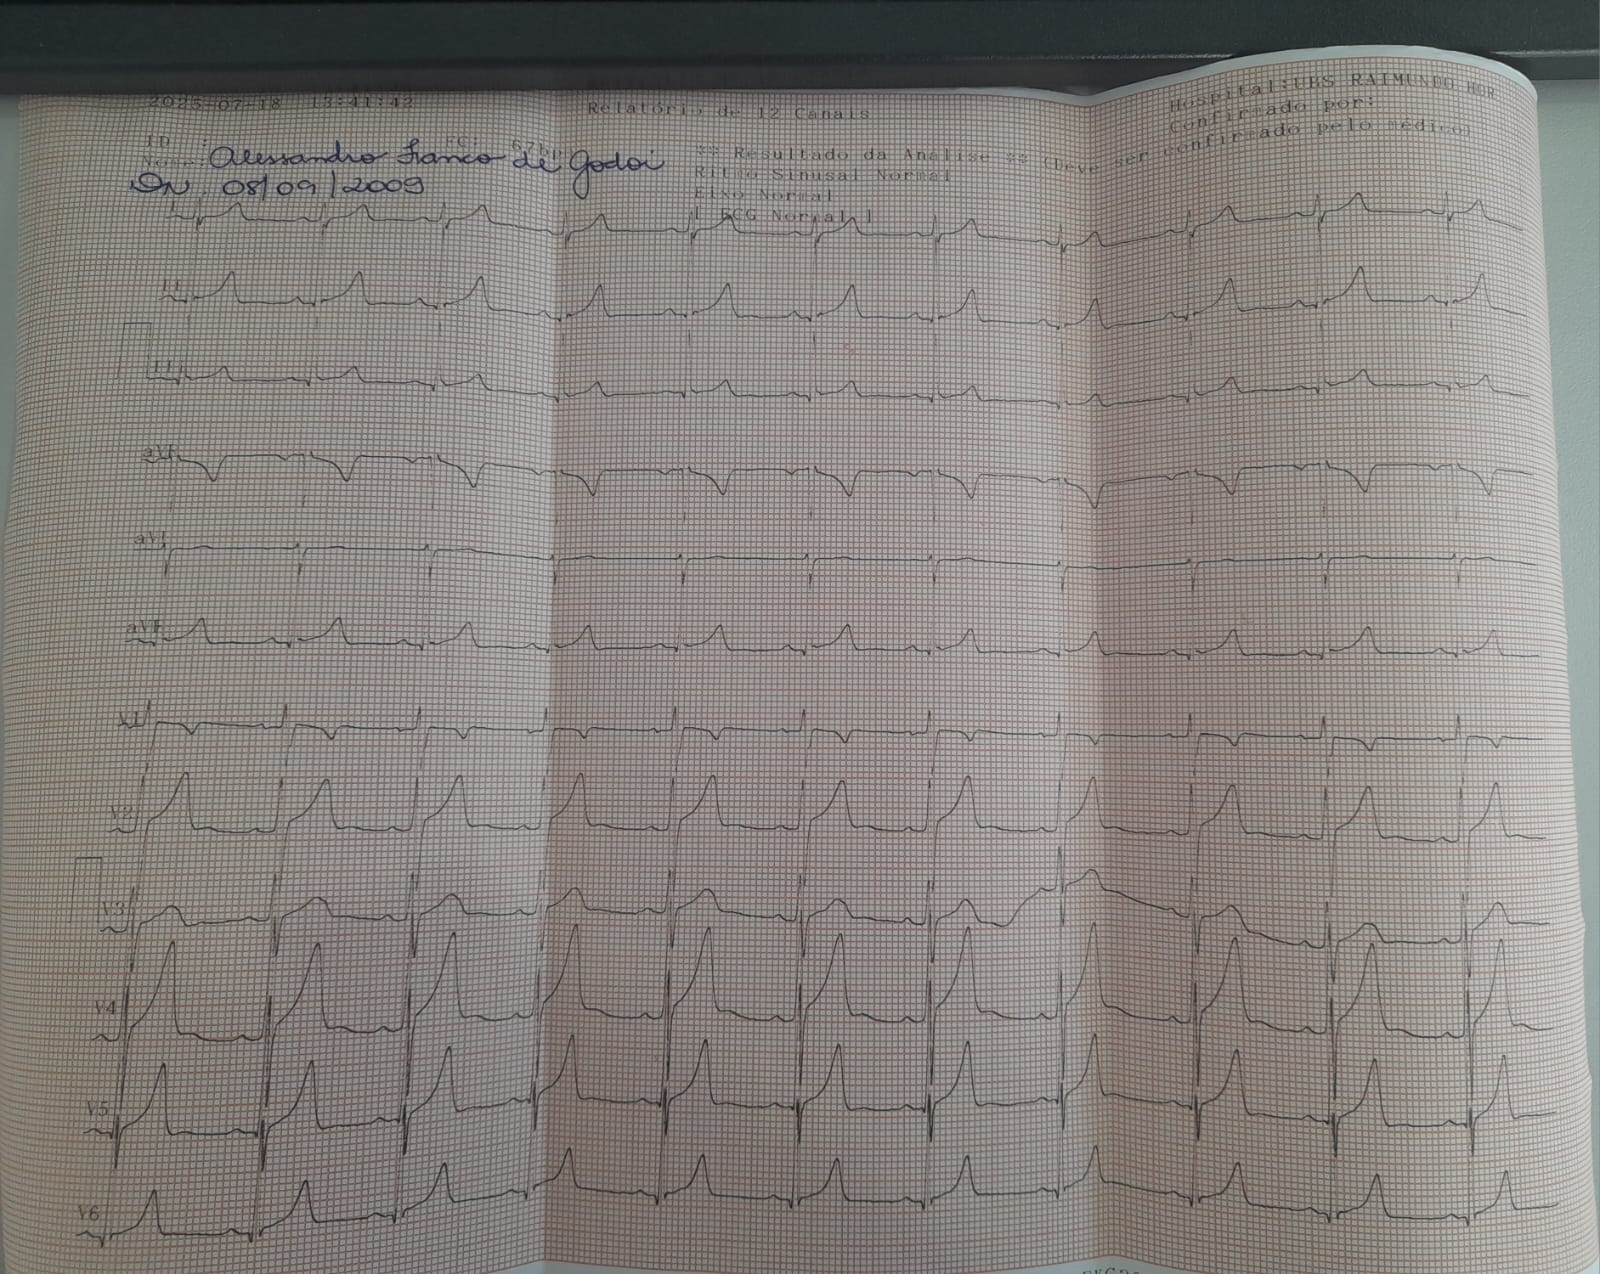 2025-07-18 13:41:42
Relatório de 12 Canais
Hospital:UBS RAIMUNDO HOR
Confirmado por:
ID : FC: 67bp
Nome: Alessandro Franco de Godoi
DN 08/09/2009
** Resultado da Análise ** (Deve ser confirmado pelo médico)
Ritmo Sinusal Normal
Eixo Normal
[ ECG Normal ]
I
II
III
aVR
aVL
aVF
V1
V2
V3
V4
V5
V6